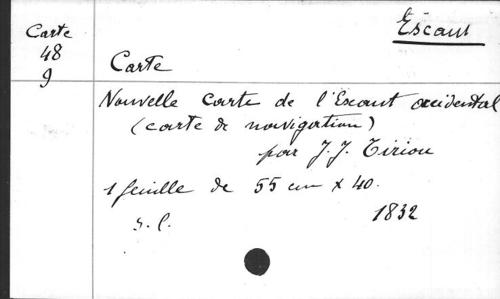 Carte
48
9
Escaut
Carte
Nouvelle Carte de l'Escaut occidental
(carte de navigation)
par J. J. Tiriou
1 feuille de 55 cm x 40.
s. l. 1832